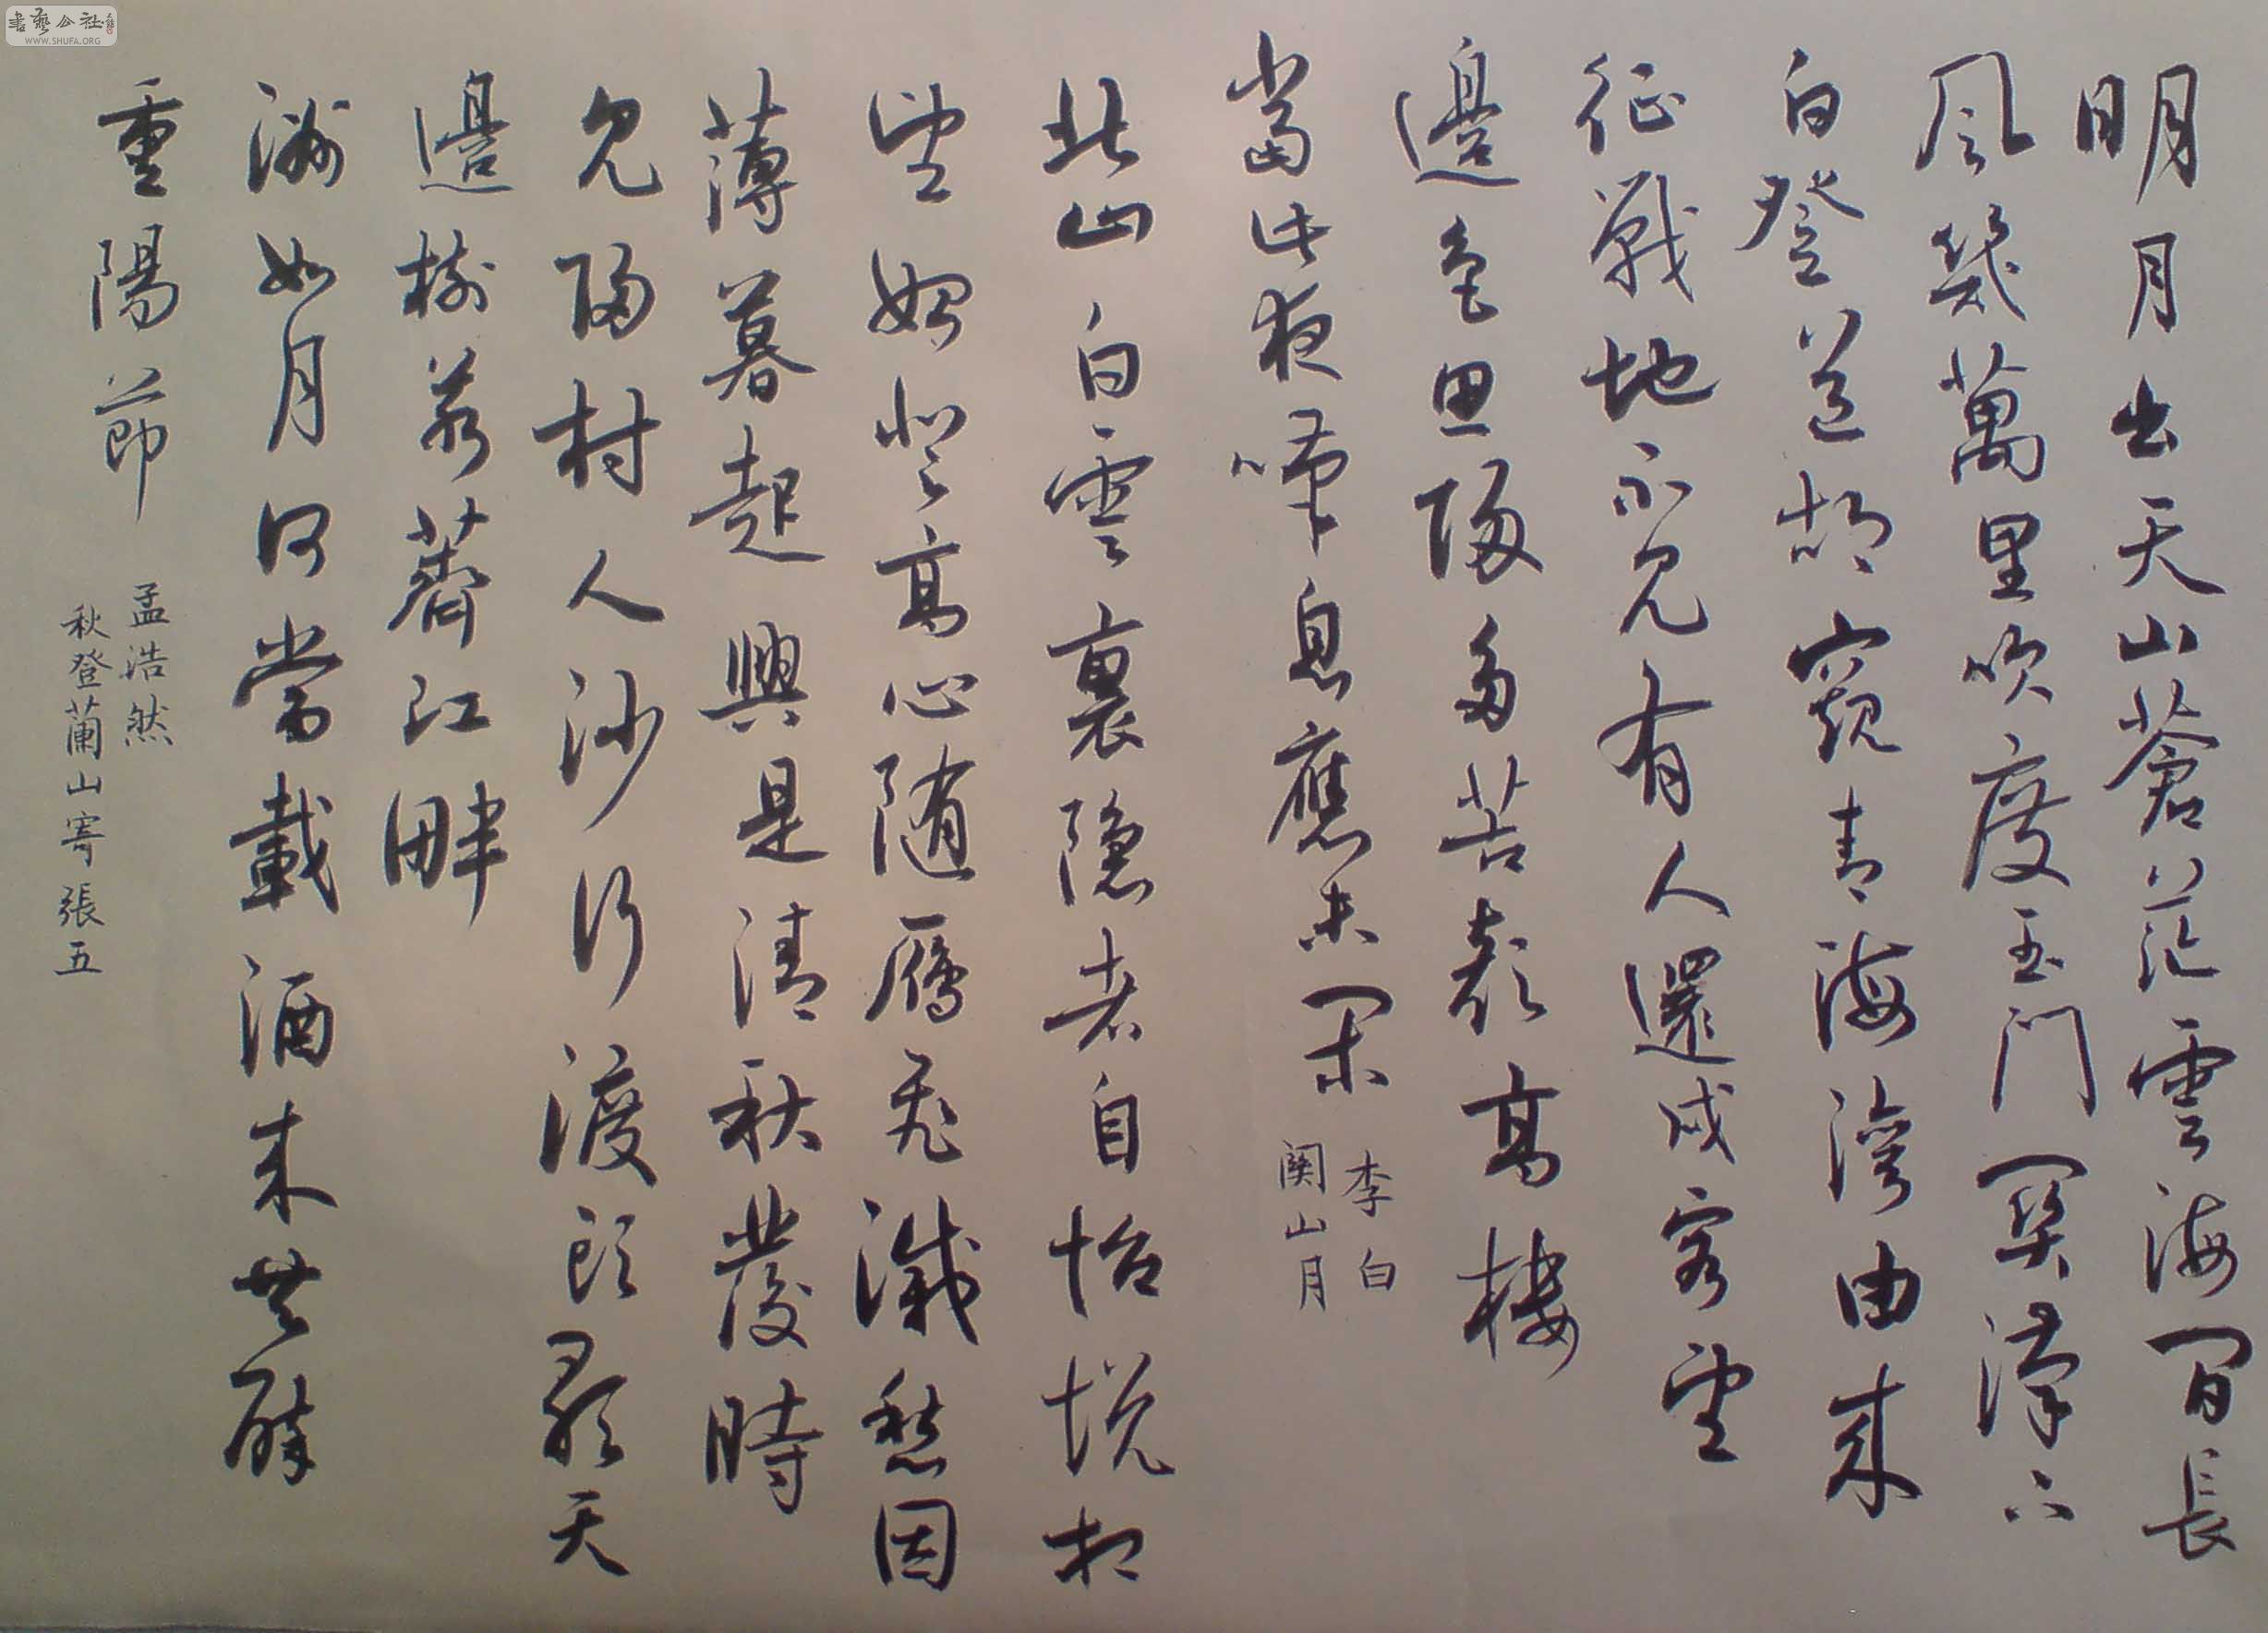 書藝公社
WWW.SHUFA.ORG
明月出天山蒼茫雲海間長
風幾萬里吹度玉門關漢下
白登道胡窺青海灣由來
征戰地不見有人還戍客望
邊色思歸多苦顏高樓
當此夜啼息應未閑
李白
關山月
北山白雲裏隱者自怡悅相
望始登高心随雁飛滅愁因
薄暮起興是清秋發時
見歸村人沙行渡頭歇天
邊樹若薺江畔
洲如月何常載酒來共醉
重陽節
孟浩然
秋登蘭山寄張五